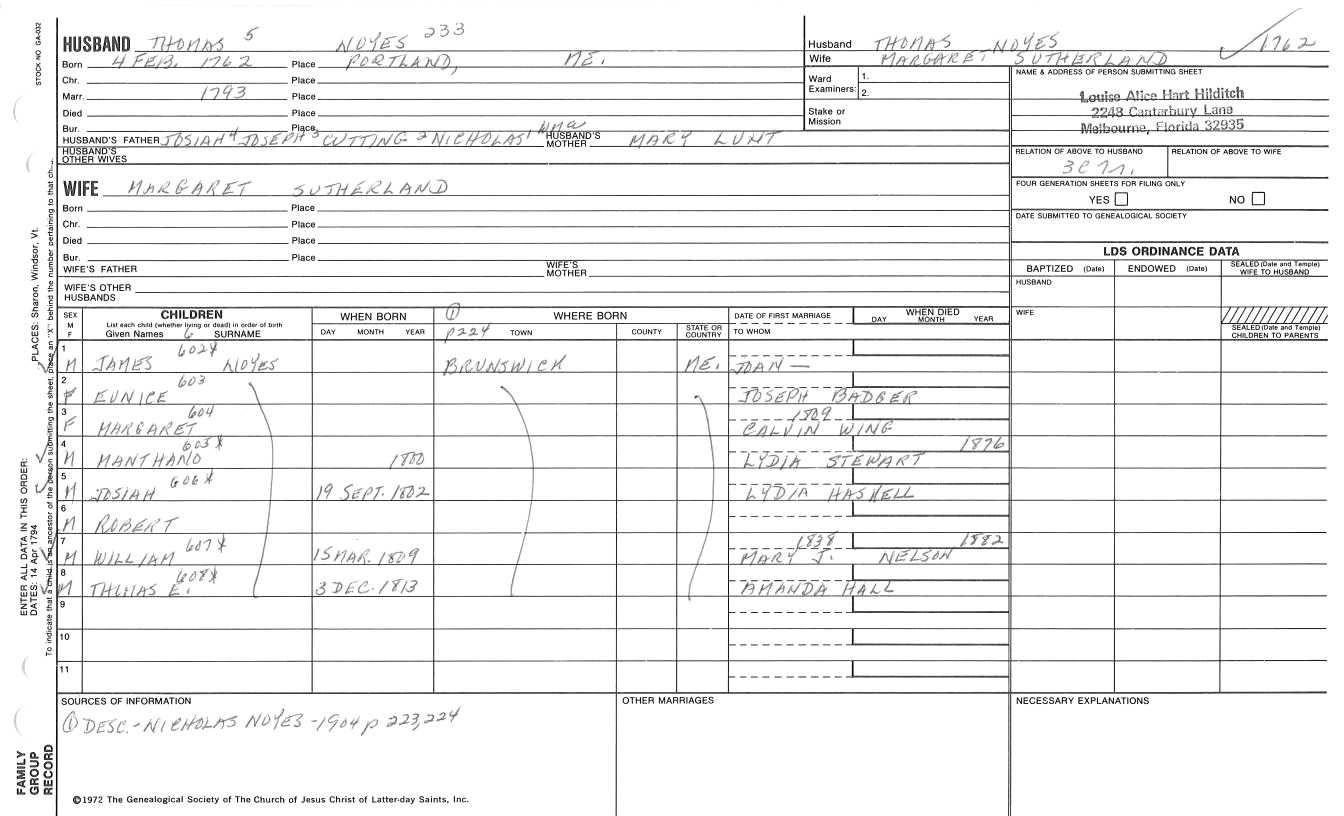 STOCK NO GA-032
HUSBAND THOMAS 5 NOYES 233
Born 4 FEB. 1762 Place PORTLAND, ME.
Chr. Place
Marr. 1793 Place
Died Place
Bur. Place
HUSBAND'S FATHER JOSIAH 4 JOSEPH 3 CUTTING 2 NICHOLAS 1 HUSBAND'S MOTHER MARY LUNT
HUSBAND'S OTHER WIVES
WIFE MARGARET SUTHERLAND
Born Place
Chr. Place
Died Place
Bur. Place
WIFE'S FATHER WIFE'S MOTHER
WIFE'S OTHER HUSBANDS
Husband THOMAS NOYES 1762
Wife MARGARET SUTHERLAND
Ward Examiners: 1.
2.
Stake or Mission
NAME & ADDRESS OF PERSON SUBMITTING SHEET
Louise Alice Hart Hilditch
2248 Canterbury Lane
Melbourne, Florida 32935
RELATION OF ABOVE TO HUSBAND RELATION OF ABOVE TO WIFE
FOUR GENERATION SHEETS FOR FILING ONLY
YES NO
DATE SUBMITTED TO GENEALOGICAL SOCIETY
LDS ORDINANCE DATA
BAPTIZED (Date) ENDOWED (Date) SEALED (Date and Temple) WIFE TO HUSBAND
HUSBAND
WIFE
SEALED (Date and Temple) CHILDREN TO PARENTS
SEX M F
CHILDREN
List each child (whether living or dead) in order of birth
Given Names 6 SURNAME
WHEN BORN
DAY MONTH YEAR
① WHERE BORN
p224 TOWN COUNTY STATE OR COUNTRY
DATE OF FIRST MARRIAGE
TO WHOM
WHEN DIED
DAY MONTH YEAR
1 602X
M JAMES NOYES BRUNSWICK ME. JOAN —
2 603
F EUNICE JOSEPH BADGER
3 604 1809
F MARGARET CALVIN WING
4 605X 1876
M MANTHANO 1800 LYDIA STEWART
5 606X
M JOSIAH 19 SEPT. 1802 LYDIA HASKELL
6
M ROBERT
7 607X 1838 1882
M WILLIAM 15 MAR. 1809 MARY J. NELSON
8 608X
M THOMAS E. 3 DEC. 1813 AMANDA HALL
9
10
11
SOURCES OF INFORMATION
① DESC. - NICHOLAS NOYES - 1904 p 223, 224
OTHER MARRIAGES
NECESSARY EXPLANATIONS
©1972 The Genealogical Society of The Church of Jesus Christ of Latter-day Saints, Inc.
FAMILY GROUP RECORD
ENTER ALL DATA IN THIS ORDER:
DATES: 14 Apr 1794
PLACES: Sharon, Windsor, Vt.
To indicate that a child is an ancestor of the person submitting the sheet, place an "X" behind the number pertaining to that ch